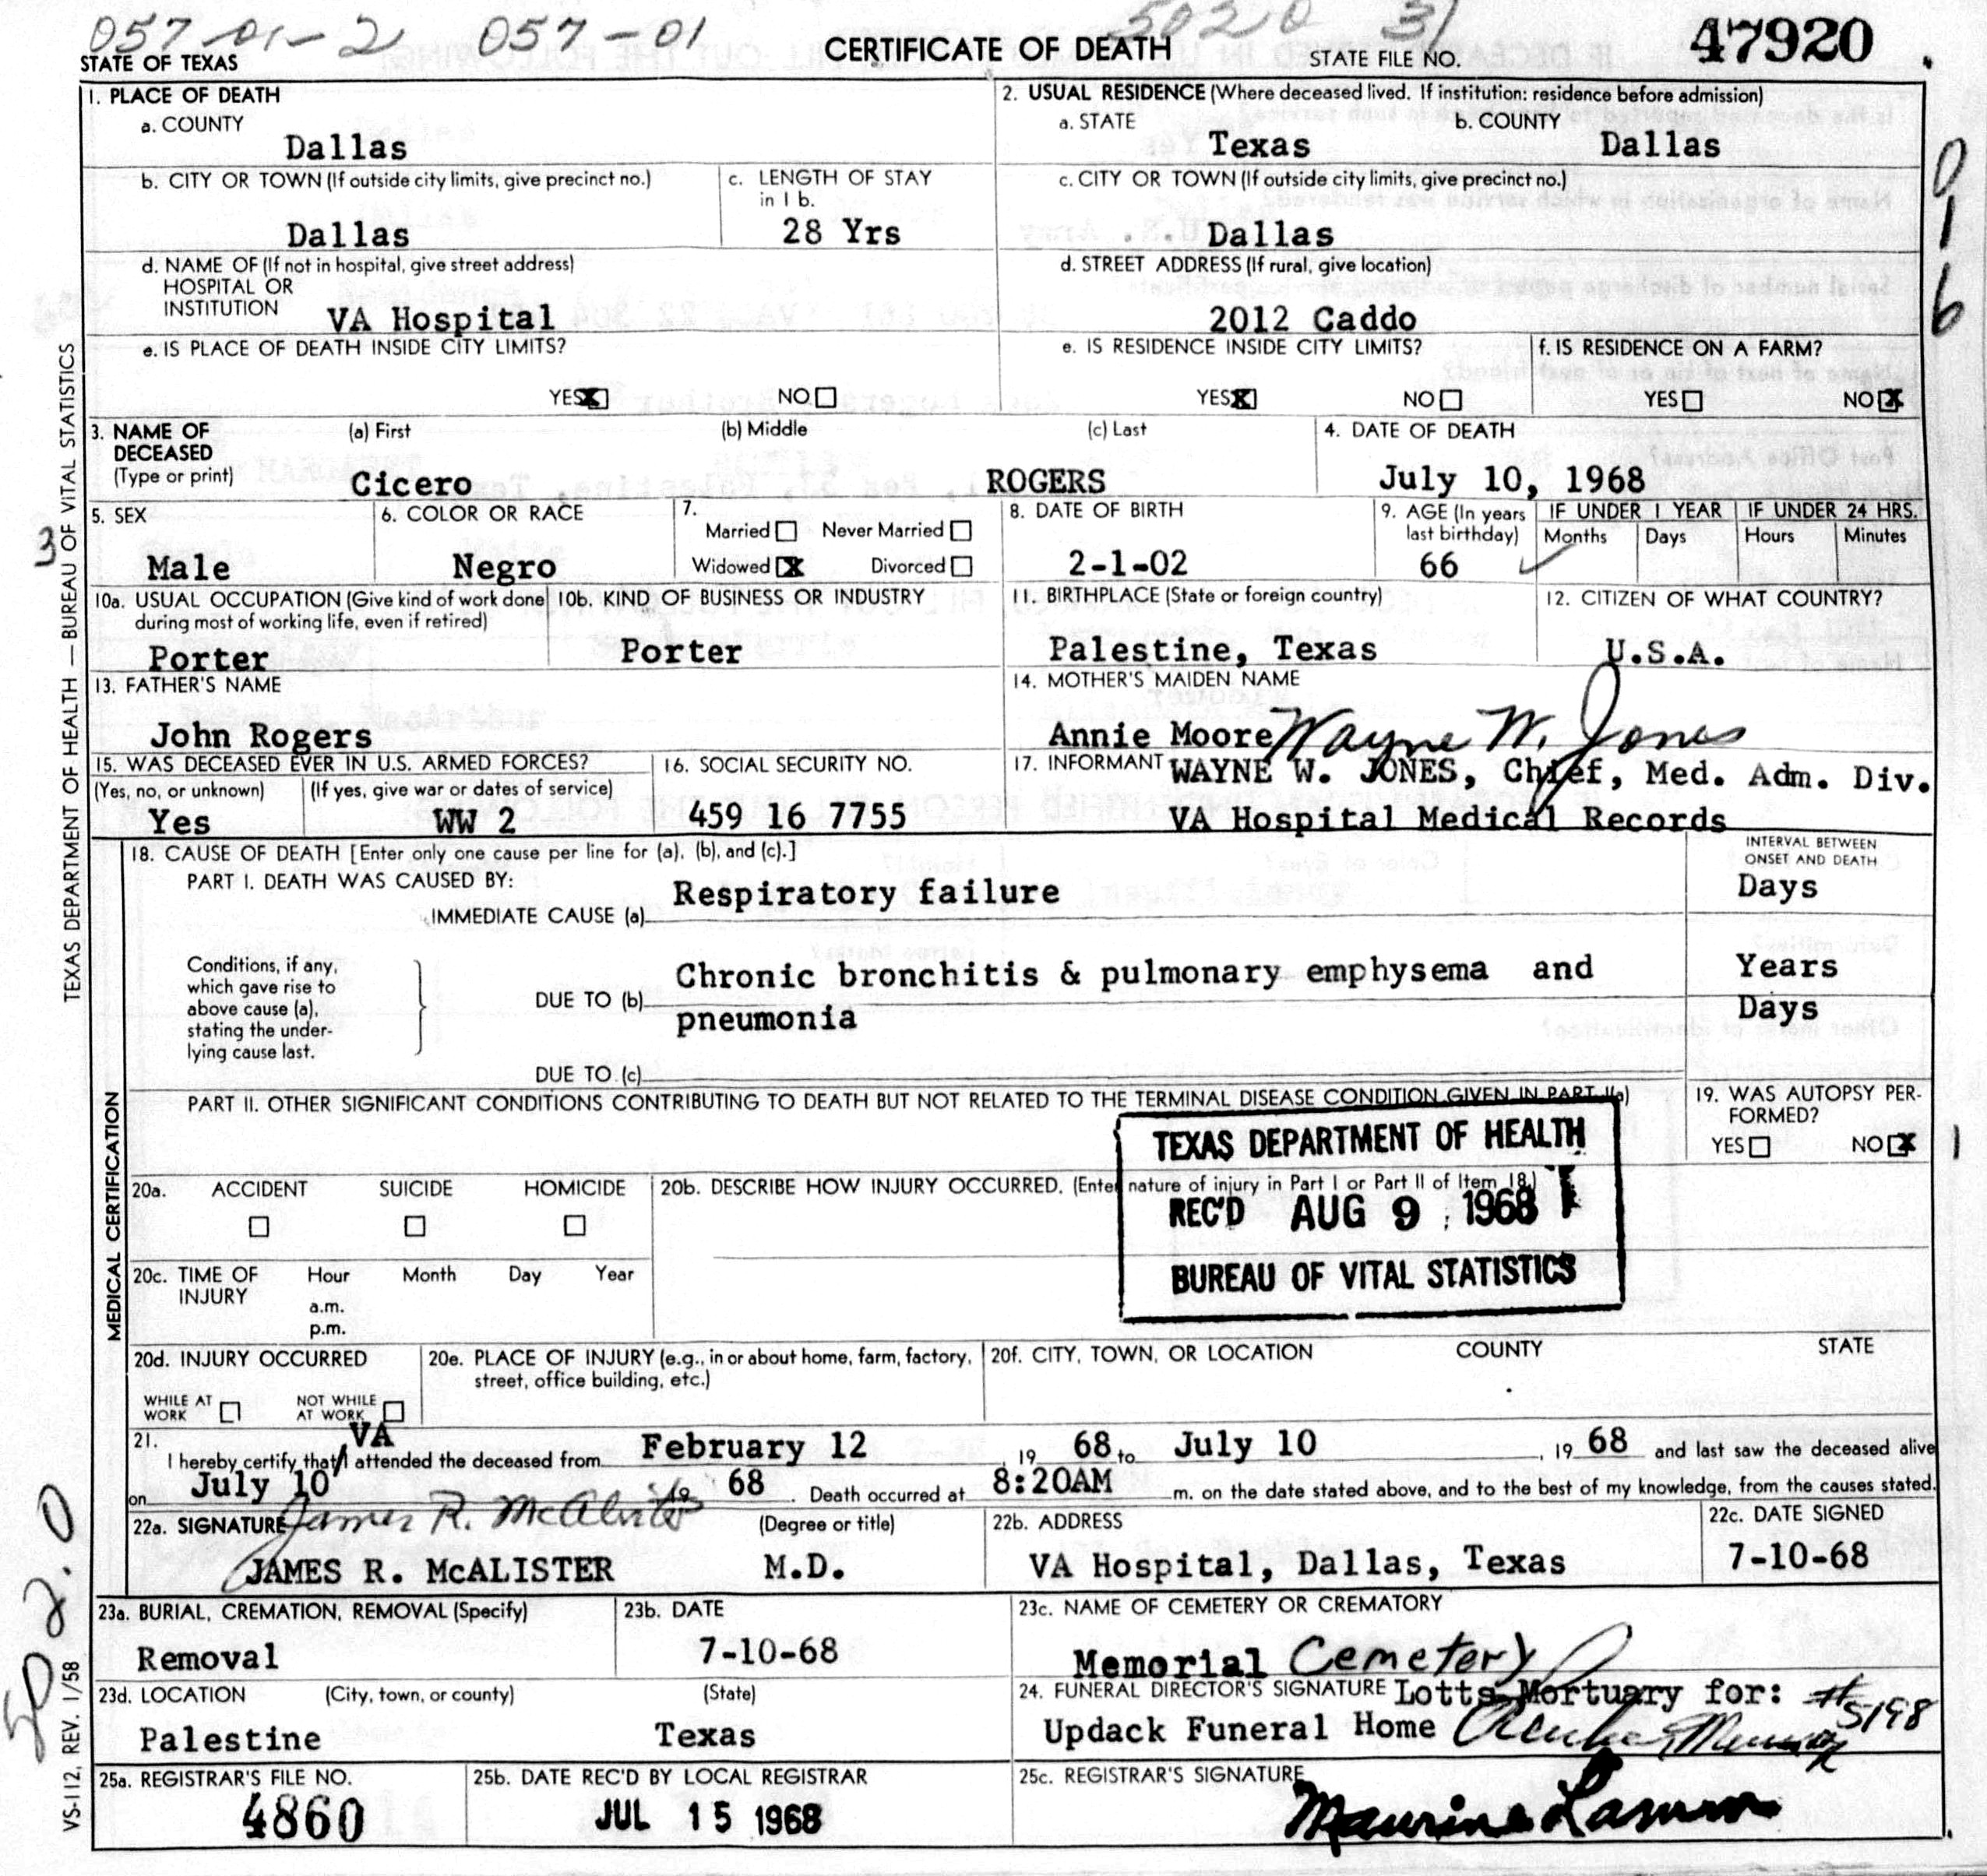 057-01-2 057-01 5020 31
STATE OF TEXAS CERTIFICATE OF DEATH STATE FILE NO. 47920
1. PLACE OF DEATH
a. COUNTY
Dallas
2. USUAL RESIDENCE (Where deceased lived. If institution: residence before admission)
a. STATE b. COUNTY
Texas Dallas
b. CITY OR TOWN (If outside city limits, give precinct no.)
Dallas
c. LENGTH OF STAY
in 1 b.
28 Yrs
c. CITY OR TOWN (If outside city limits, give precinct no.)
Dallas
d. NAME OF (If not in hospital, give street address)
HOSPITAL OR
INSTITUTION VA Hospital
d. STREET ADDRESS (If rural, give location)
2012 Caddo
e. IS PLACE OF DEATH INSIDE CITY LIMITS?
YES X NO
e. IS RESIDENCE INSIDE CITY LIMITS?
YES X NO
f. IS RESIDENCE ON A FARM?
YES NO X
016
3. NAME OF
DECEASED
(Type or print)
(a) First (b) Middle (c) Last
Cicero ROGERS
4. DATE OF DEATH
July 10, 1968
3
5. SEX
Male
6. COLOR OR RACE
Negro
7.
Married Never Married
Widowed X Divorced
8. DATE OF BIRTH
2-1-02
9. AGE (In years
last birthday)
66
IF UNDER 1 YEAR IF UNDER 24 HRS.
Months Days Hours Minutes
10a. USUAL OCCUPATION (Give kind of work done
during most of working life, even if retired)
Porter
10b. KIND OF BUSINESS OR INDUSTRY
Porter
11. BIRTHPLACE (State or foreign country)
Palestine, Texas
12. CITIZEN OF WHAT COUNTRY?
U.S.A.
13. FATHER'S NAME
John Rogers
14. MOTHER'S MAIDEN NAME
Annie Moore Wayne W. Jones
15. WAS DECEASED EVER IN U.S. ARMED FORCES?
(Yes, no, or unknown) (If yes, give war or dates of service)
Yes WW 2
16. SOCIAL SECURITY NO.
459 16 7755
17. INFORMANT WAYNE W. JONES, Chief, Med. Adm. Div.
VA Hospital Medical Records
TEXAS DEPARTMENT OF HEALTH — BUREAU OF VITAL STATISTICS
MEDICAL CERTIFICATION
18. CAUSE OF DEATH [Enter only one cause per line for (a), (b), and (c).]
INTERVAL BETWEEN
ONSET AND DEATH
PART I. DEATH WAS CAUSED BY:
IMMEDIATE CAUSE (a) Respiratory failure Days
Conditions, if any,
which gave rise to
above cause (a),
stating the under-
lying cause last.
DUE TO (b) Chronic bronchitis & pulmonary emphysema and Years
pneumonia Days
DUE TO (c)
PART II. OTHER SIGNIFICANT CONDITIONS CONTRIBUTING TO DEATH BUT NOT RELATED TO THE TERMINAL DISEASE CONDITION GIVEN IN PART I(a)
19. WAS AUTOPSY PER-
FORMED?
YES NO X 1
TEXAS DEPARTMENT OF HEALTH
REC'D AUG 9 1968
BUREAU OF VITAL STATISTICS
20a. ACCIDENT SUICIDE HOMICIDE
20b. DESCRIBE HOW INJURY OCCURRED. (Enter nature of injury in Part I or Part II of Item 18.)
20c. TIME OF
INJURY
Hour Month Day Year
a.m.
p.m.
20d. INJURY OCCURRED
WHILE AT
WORK
NOT WHILE
AT WORK
20e. PLACE OF INJURY (e.g., in or about home, farm, factory,
street, office building, etc.)
20f. CITY, TOWN, OR LOCATION COUNTY STATE
21. VA
I hereby certify that I attended the deceased from February 12, 19 68 to July 10, 19 68 and last saw the deceased alive
on July 10 19 68. Death occurred at 8:20AM m. on the date stated above, and to the best of my knowledge, from the causes stated.
22a. SIGNATURE James R. McAlister (Degree or title)
JAMES R. McALISTER M.D.
22b. ADDRESS
VA Hospital, Dallas, Texas
22c. DATE SIGNED
7-10-68
502.0
23a. BURIAL, CREMATION, REMOVAL (Specify)
Removal
23b. DATE
7-10-68
23c. NAME OF CEMETERY OR CREMATORY
Memorial Cemetery
23d. LOCATION (City, town, or county) (State)
Palestine Texas
24. FUNERAL DIRECTOR'S SIGNATURE Lotts Mortuary for: #5198
Updack Funeral Home
25a. REGISTRAR'S FILE NO.
4860
25b. DATE REC'D BY LOCAL REGISTRAR
JUL 15 1968
25c. REGISTRAR'S SIGNATURE
Maurine
VS-112, REV. 1/58